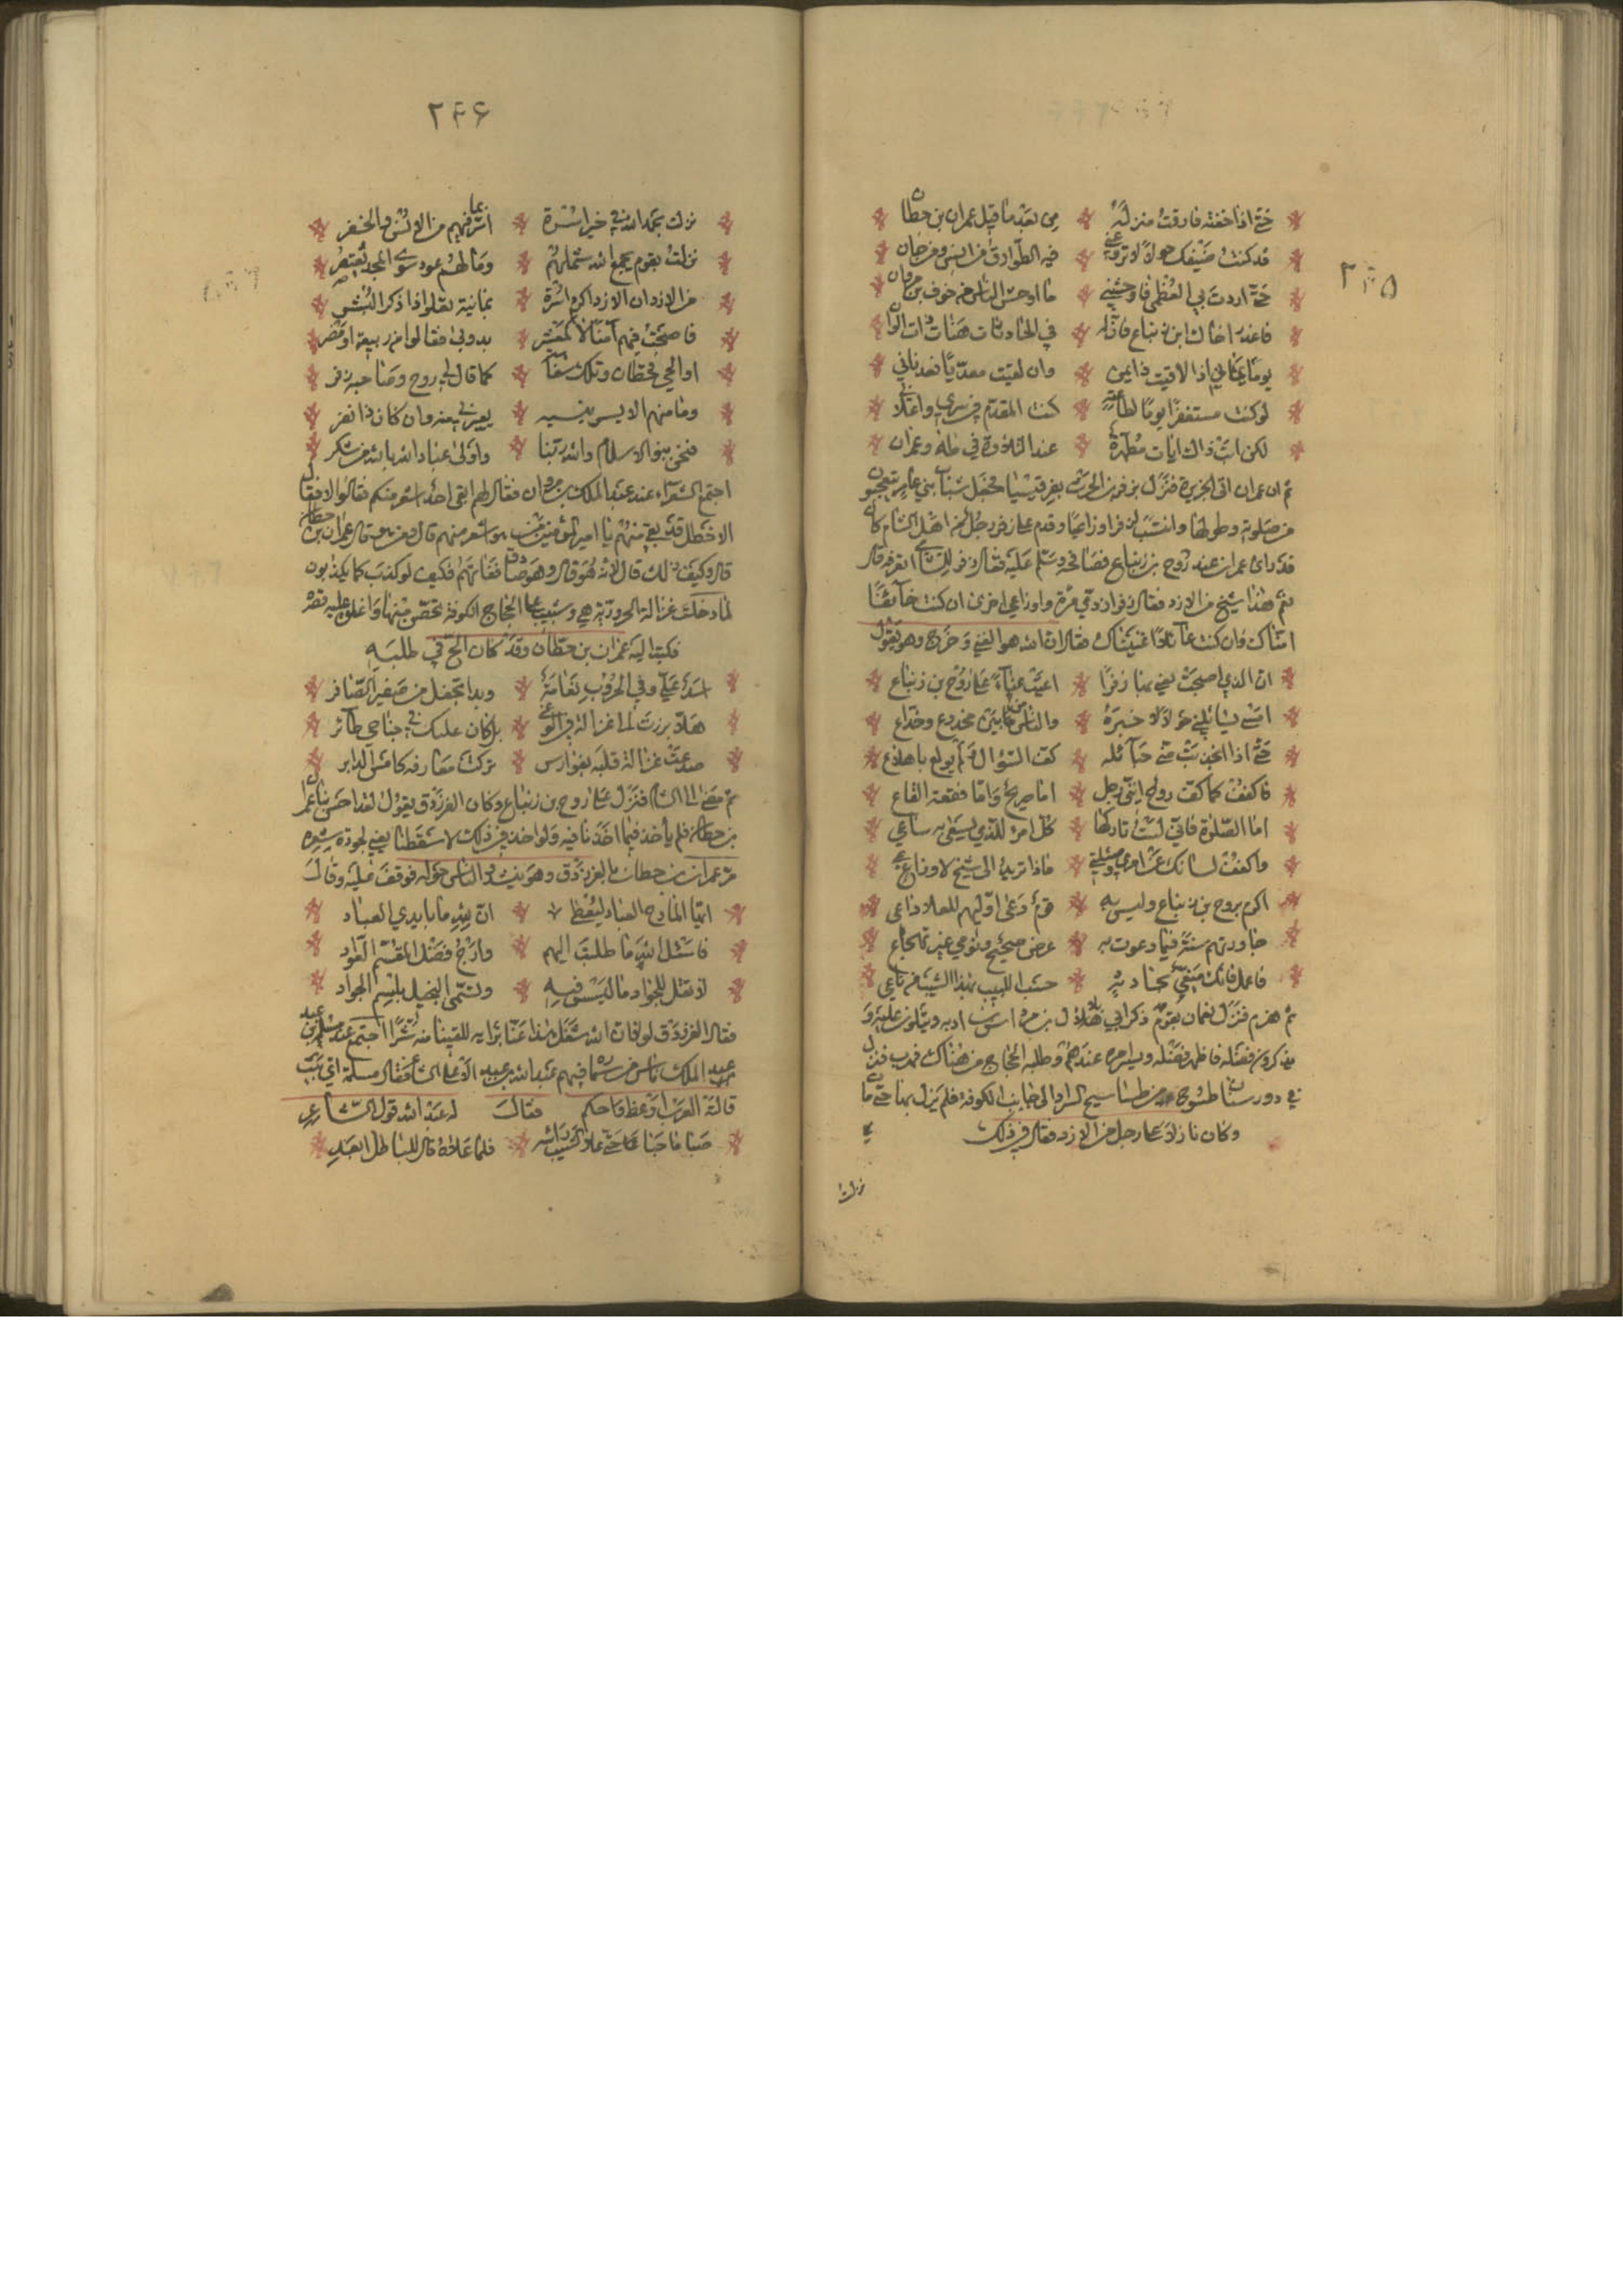 ٢٤٥
حتى اذا خفته فارقت منزله من بعد ما قيل عمران بن حطان
قد كنت ضيفك حولا لا تروعني فيه الطوارق من انس ومن جان
حتى اردت بي العظمى فاوحشني ما اوحش الناس من خوف بن مروان
فاعذر اخاك ابن زنباع فان له في الحادثات هنات ذات الوان
يوما يمان اذا لاقيت ذا يمن وان لقيت معديا فعدناني
لو كنت مستغفرا يوما لطاغية كنت المقدم في سري واعلاني
لكن ابت ذاك ايات مطهرة عند التلاوة في طه وعمران
ثم ان عمران اتى الجزيرة فنزل بزفر بن الحرث بقرقيسيا فجعل شباب بني عامر يتعجبون
من صلوته وطولها وانتسب لزفر اوزاعيا وقدم على زفر رجل من اهل الشام كان
قد رأى عمران عند روح بن زنباع فصافحه وسلم عليه فقال زفر للشامي اتعرفه قال
نعم هذا شيخ من الازد فقال زفر ازدي مرة واوزاعي اخرى ان كنت خائفا
امناك وان كنت عائلا اغنيناك فقال ان الله هو الغني وخرج وهو يقول
ان الذي اصبحت يعيى بها زفرا اعيت عياء على روح بن زنباع
امسى يسائلني حولا لا خبره والناس من بين مخدوع وخداع
حتى اذا انجذبت مني حبائله كف السؤال ولم يولع باهلاع
فاكفف كما كف روح انني رجل اما صريح واما فقعة القاع
اما الصلوة فاني لست تاركها كل امرئ للذي يسعى به ساعي
واكفف لسانك عن لومي ومسئلتي ماذا تريد الى شيخ لاوزاع
اكرم بروح بن زنباع واسرته قوم دعى اوليهم للعلا داعي
جاورتهم سنة فيما دعوت به عرضي صحيح ونومي غير تهجاع
فاعمل فانك منعي بحادثة حسب اللبيب بهذا الشيب من ناعي
ثم هزم فنزل بعمان بقوم ذكر ابي بلال بن مرداس بن ادية ويثنون عليه و
يذكرون فضله فاظهر فضله ويسر امره عندهم وطلبه الحجاج من هناك فهرب فنزل
في رودستان طسوج من طساسيج السواد الى جانب الكوفة فلم يزل بها حتى مات
وكان نازلا على رجل من الازد فقال في ذلك
نزلت
٢٤٦
نزلت بحمد الله في خير اسرة اسر بما فيهم من الانس والخفر
نزلت بقوم يجمع الله شملهم وما لهم عود سوى المجد يعتصر
من الازد ان الازد اكرم اسرة يمانية
فاصبحت فيهم آمنا لا كمعشر بدوني فقالوا من ربيعة او مضر
او الحي قحطان وتلك سفاهة كما قال لي روح وصاحبه زفر
وما منهم الا يسر بنسبة يقربني منه وان كان ذا نفر
فنحن بنو الاسلام والله ربنا واولى عباد الله بالله من شكر
اجتمع الشعراء عند عبد الملك بن مروان فقال لهم ابقى احد اشعر منكم فقالوا لا فقال
الاخطل قد بقي منهم يا امير المؤمنين من هو اشعر منهم قال ومن هو قال عمران بن حطان
قال وكيف ذلك قال لانه وهو صادق ففاتهم فكيف لو كذب كما يكذبون
لما دخلت غزالة الحرورية هي وشبيب على الحجاج الكوفة تحصن منها واغلق عليه قصره
فكتب اليه عمران بن حطان وقد كان الح في طلبه
اسد علي وفي الحروب نعامة ربداء تجفل من صفير الصافر
هلا برزت الى غزالة في الوغى بل كان قلبك في جناحي طائر
صدعت غزالة قلبه بفوارس تركت معارفه كامس الدابر
ثم مضى الى الشام فنزل على روح بن زنباع وكان الفرزدق يقول لقد احسن بنا عمران
بن حطان فلم يأخذ فيما اخذنا فيه ولو اخذ في ذلك لاسقطنا يعني لجودة شعره
مر عمران بن حطان على الفرزدق وهو ينشد والناس حوله فوقف عليه وقال
ايها المادح العباد ليعطى ان لله ما بايدي العباد
فاسئل الله ما طلبت اليهم وارج فضل المقسم العواد
لا تقل للجواد ما ليس فيه وتسمى البخيل باسم الجواد
فقال الفرزدق لولا ان الله شغل هذا عنا برايه للقينا منه شرا اجتمع عند مسلمة بن عبد
عبد الملك ناس من سماره فيهم عبد الله بن عبد الاعلى الشاعر فقال مسلمة اي بيت
قالته العرب اوعظ واحكم فقال له عبد الله قول الشاعر
صبا ما صبا حتى علا الشيب رأسه فلما علاه قال للباطل ابعد